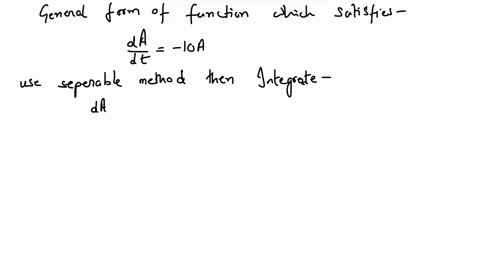 General form of function which satisfies-
dA/dt = -10A
use seperable method then Integrate-
dA